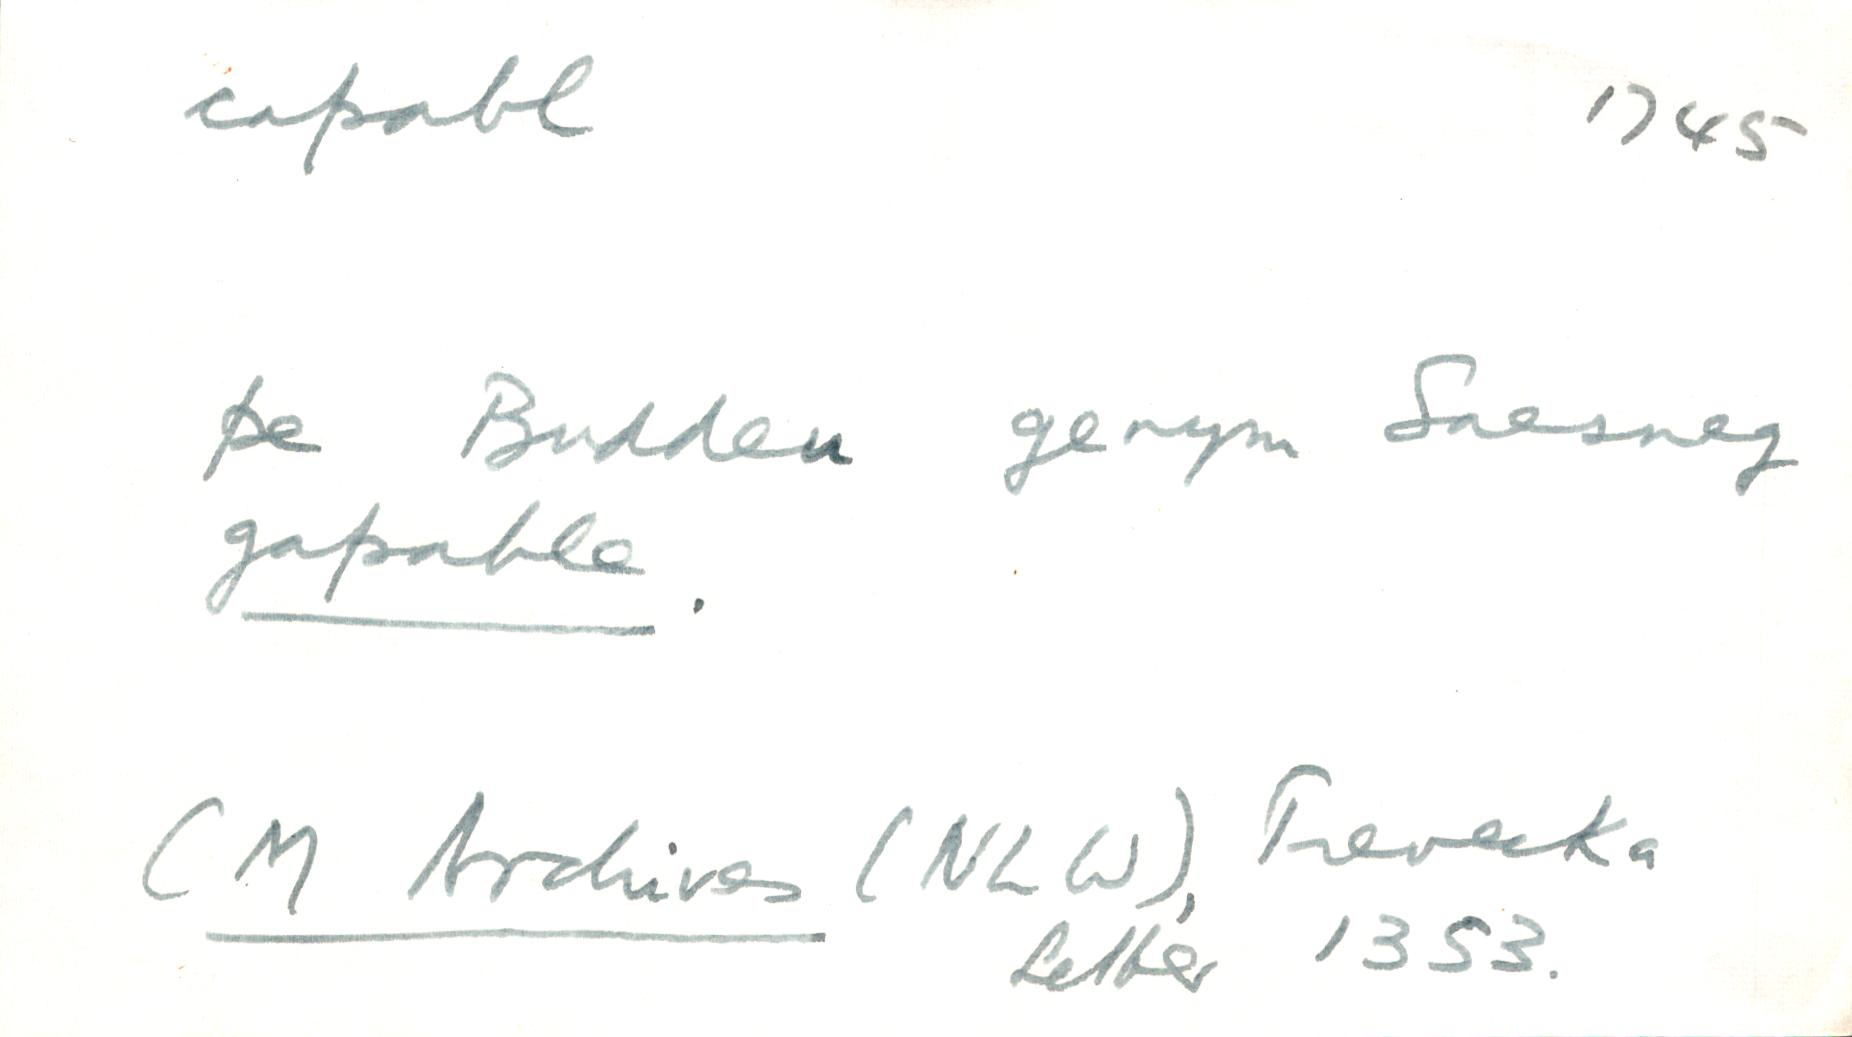 capabl 1745
pe Buddeu genym Saesneg
gapable.
CM Archives (NLW), Trevecka
Letter 1353.